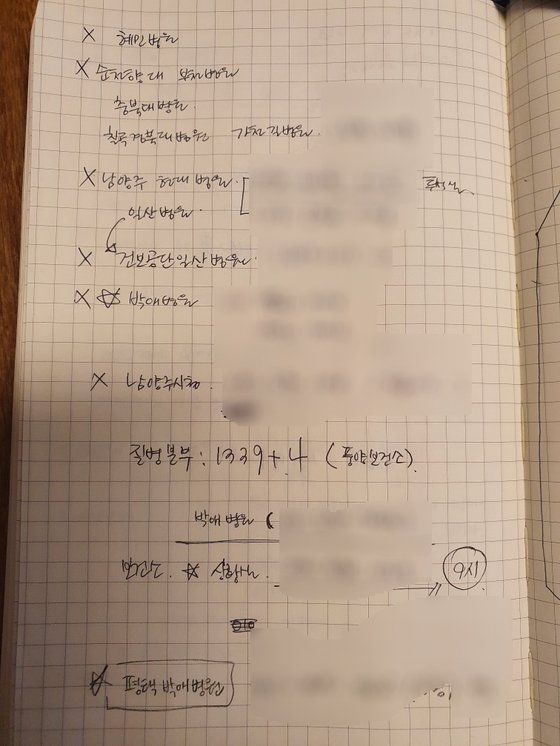 X 혜민병원
X 순천향대 부천병원
충북대병원.
칠곡경북대병원 가천길병원.
X 남양주 현대병원.
일산병원.
X 건보공단일산병원.
X ☆ 박애병원
X 남양주시청.
질병본부: 1339+4 (풍양보건소).
박애병원 (
보건소. ☆ 상황실 9시
☆ 평택 박애병원